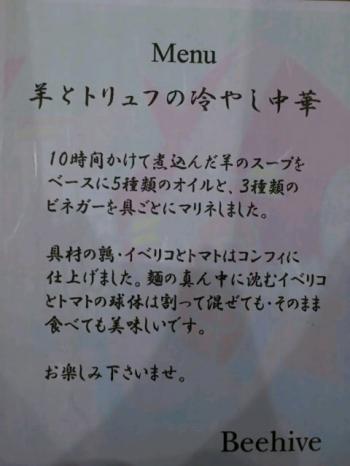 Menu
羊とトリュフの冷やし中華
10時間かけて煮込んだ羊のスープを
ベースに5種類のオイルと、3種類の
ビネガーを具ごとにマリネしました。
具材の鶉・イベリコとトマトはコンフィに
仕上げました。麺の真ん中に沈むイベリコ
とトマトの球体は割って混ぜても・そのまま
食べても美味しいです。
お楽しみ下さいませ。
Beehive